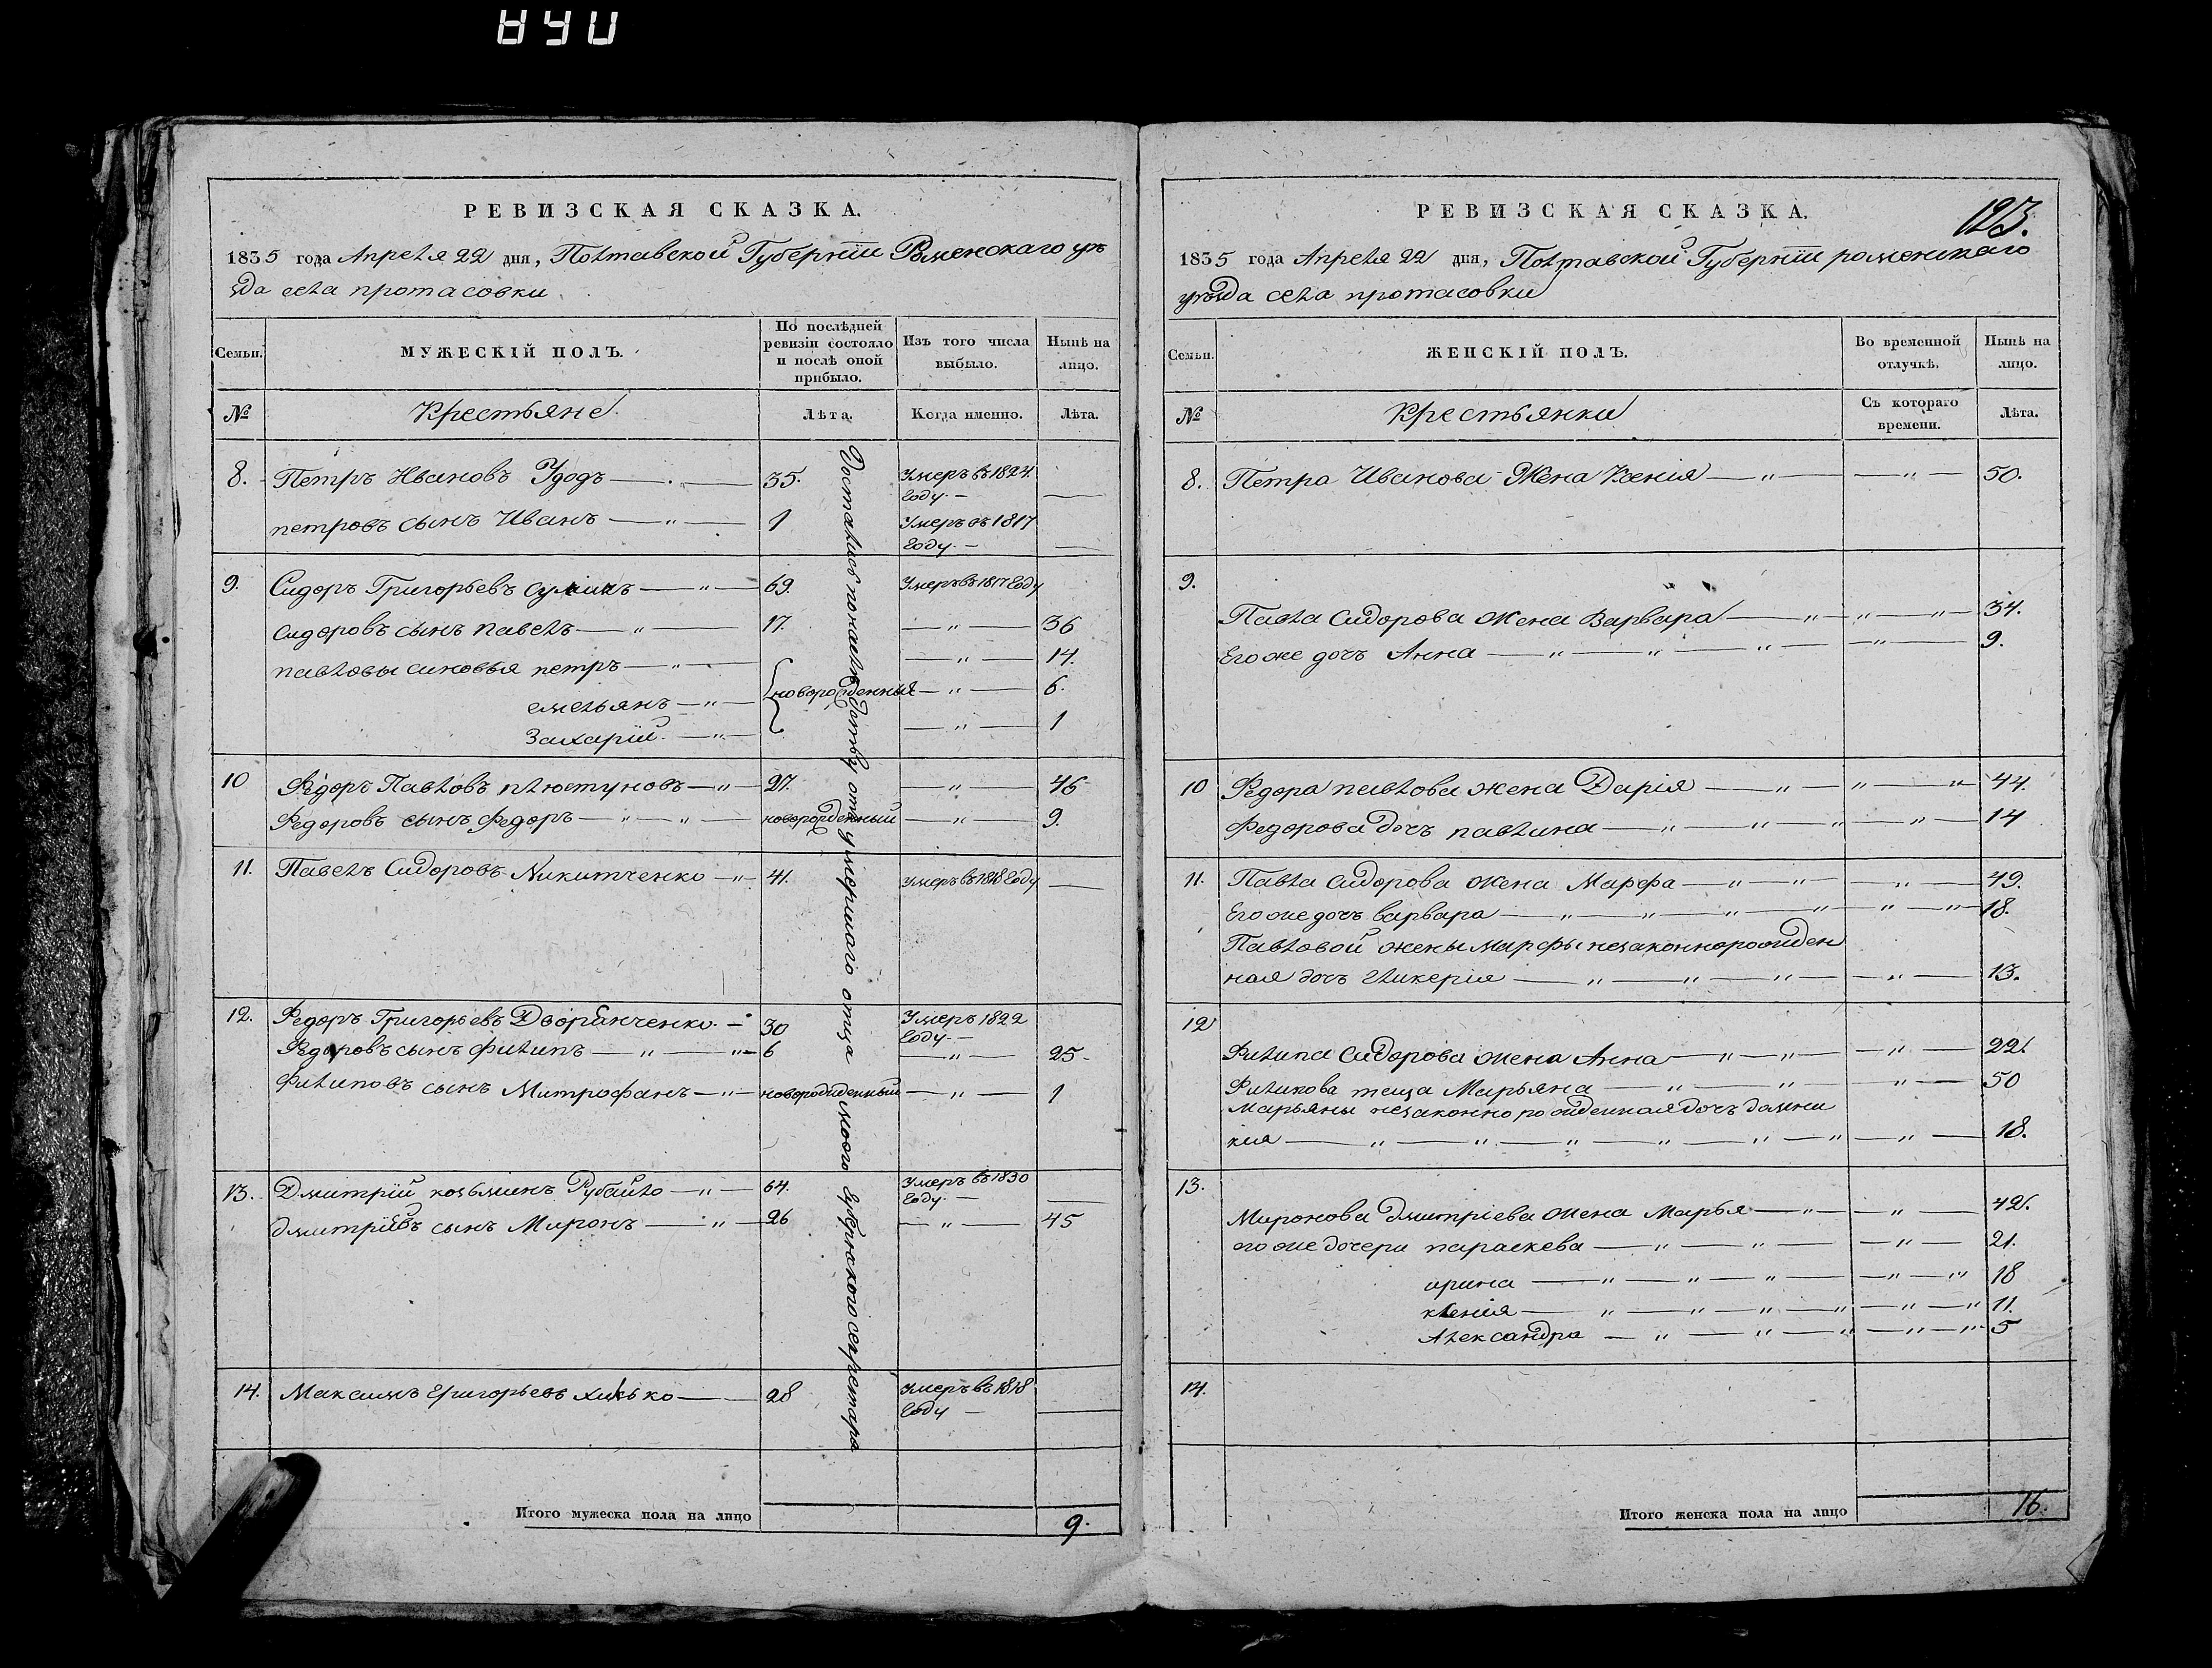 РЕВИЗСКАЯ СКАЗКА.
1835 года Апреля 22 дня, Полтавской Губернїи Роменскаго уѣ
зда села протасовки
Семьи.
МУЖЕСКІЙ ПОЛЪ.
По послѣдней
ревизіи состояло
и послѣ оной
прибыло.
Изъ того числа
выбыло.
Нынѣ на
лицо.
№
Крестьяне
Лѣта.
Когда именно.
Лѣта.
8. Петръ Ивановъ Удодъ 35. Умеръ въ 1824
Году.
петровъ сынъ Иванъ 1 Умеръ въ 1817
Году.
9. Сидоръ Григорьевъ 69. Умеръ въ 1817 Году
сидоровъ сынъ павелъ 17. 36
павловы синовья петръ 14.
емельян
ъ новорожденныя 6.
Захарій 1
10 Федоръ Павловъ плюстуновъ 27. 46
Федоровъ сынъ федоръ новорожденный 9.
11. Павелъ Сидоровъ Никитченко 41. умеръ въ 1818 Году
12. Федоръ Григорьевъ Дворянченко 30 Умеръ 1822
Году.
Федоровъ сынъ филипъ 6 25
филиповъ сынъ Митрофанъ новорожденный 1
13. Дмитрїй козьминъ Рубайло 64. Умеръ въ 1830
Году.
дмитрїевъ сынъ Миронъ 26 45
14. Максимъ Григорьевъ 28 Умеръ въ 1818
Году
Достались по наследству отъ умершаго отца моего
Итого мужеска пола на лицо 9.
РЕВИЗСКАЯ СКАЗКА.
123.
1835 года Апреля 22 дня, Полтавской Губернїи роменскаго
уѣзда села протасовки
Семьи.
ЖЕНСКІЙ ПОЛЪ.
Во временной
отлучкѣ.
Нынѣ на
лицо.
№
Крестьянки
Съ котораго
времени.
Лѣта.
8. Петра Иванова Жена Ксенія 50.
9.
Павла Сидорова жена Варвара 34.
Его же дочъ Анна 9.
10 Федора павлова жена Дарія 44.
Федорова дочъ павлина 14
11. Павла Сидорова жена Марфа 49.
Его же дочъ варвара 18.
Павловой жены марфы незаконнорожден
ная дочъ Гликерія 13.
12
Филипа Сидорова жена Анна 22.
Филипова теща Марьяна 50
Марьяны незаконно рожденная дочъ домни
кия 18.
13.
Миронова дмитріева жена Марья 42.
его же дочери параскева 21.
орина 18
ксенія 11.
Александра 5
14.
Итого женска пола на лицо 16.